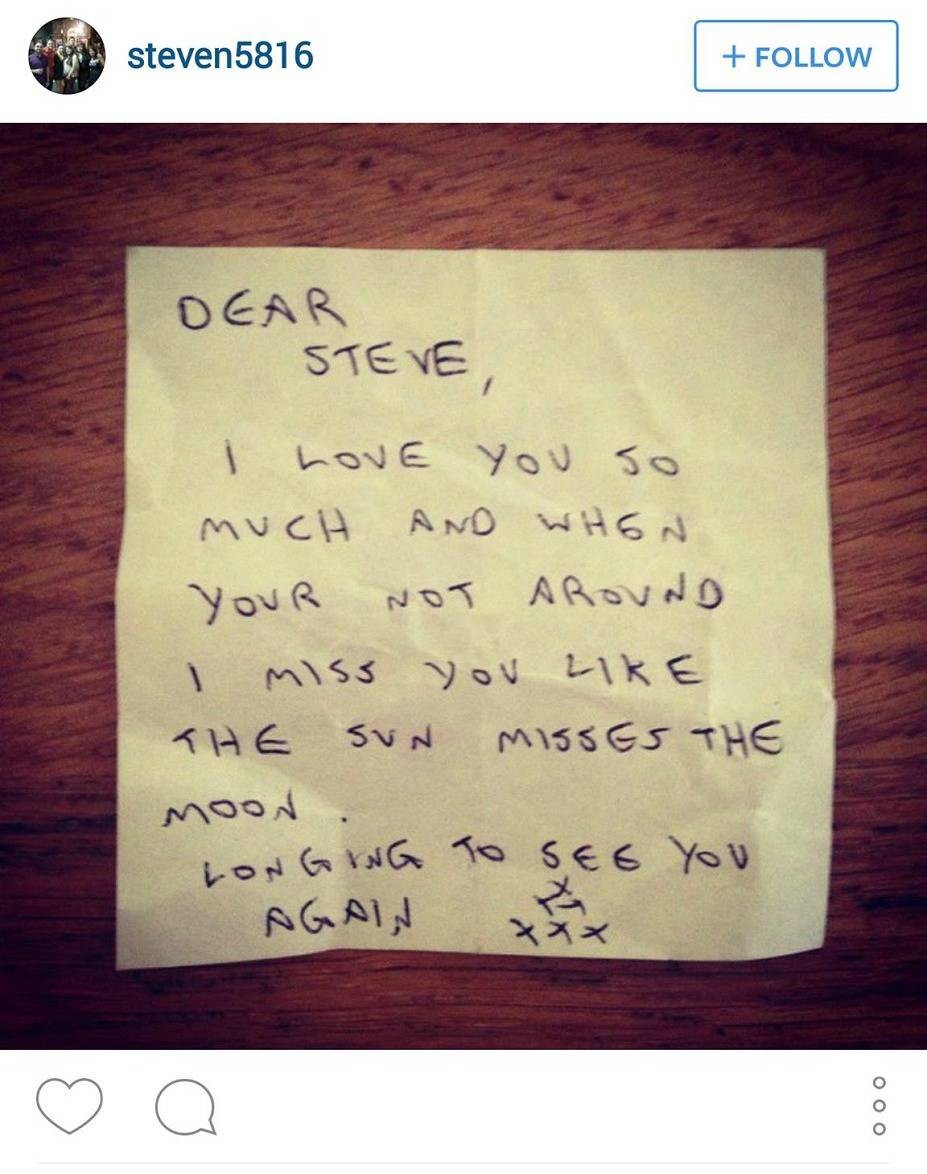 steven5816
+ FOLLOW
DEAR
STEVE,
I LOVE YOU SO
MUCH AND WHEN
YOUR NOT AROUND
I MISS YOU LIKE
THE SUN MISSES THE
MOON.
LONGING TO SEE YOU
AGAIN
xxx